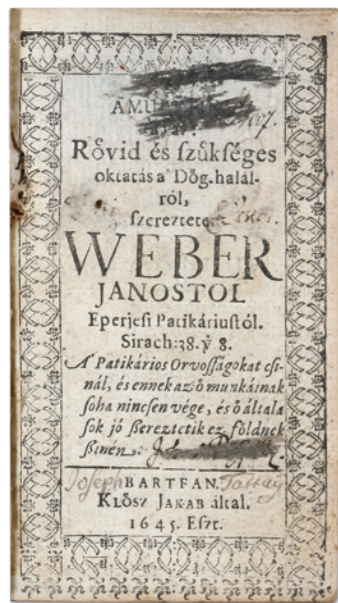 AMU
Rövid és ſzükſéges
oktatás a' Dög-halál-
ról,
ſzereztete
WEBER
JANOSTOL
Eperjeſi Patikáriuſtól.
Sirach: 38. ỳ 8.
A' Patikários Orvoſſágokat cſi-
nál, és ennek az ö munkáinak
ſoha nincſen vége, és ö általa
ſok jó ſzereztetik ez földnek
ſzinén.
Joseph
BARTFAN.
KLÖSZ JAKAB által.
1645. Eſzt.